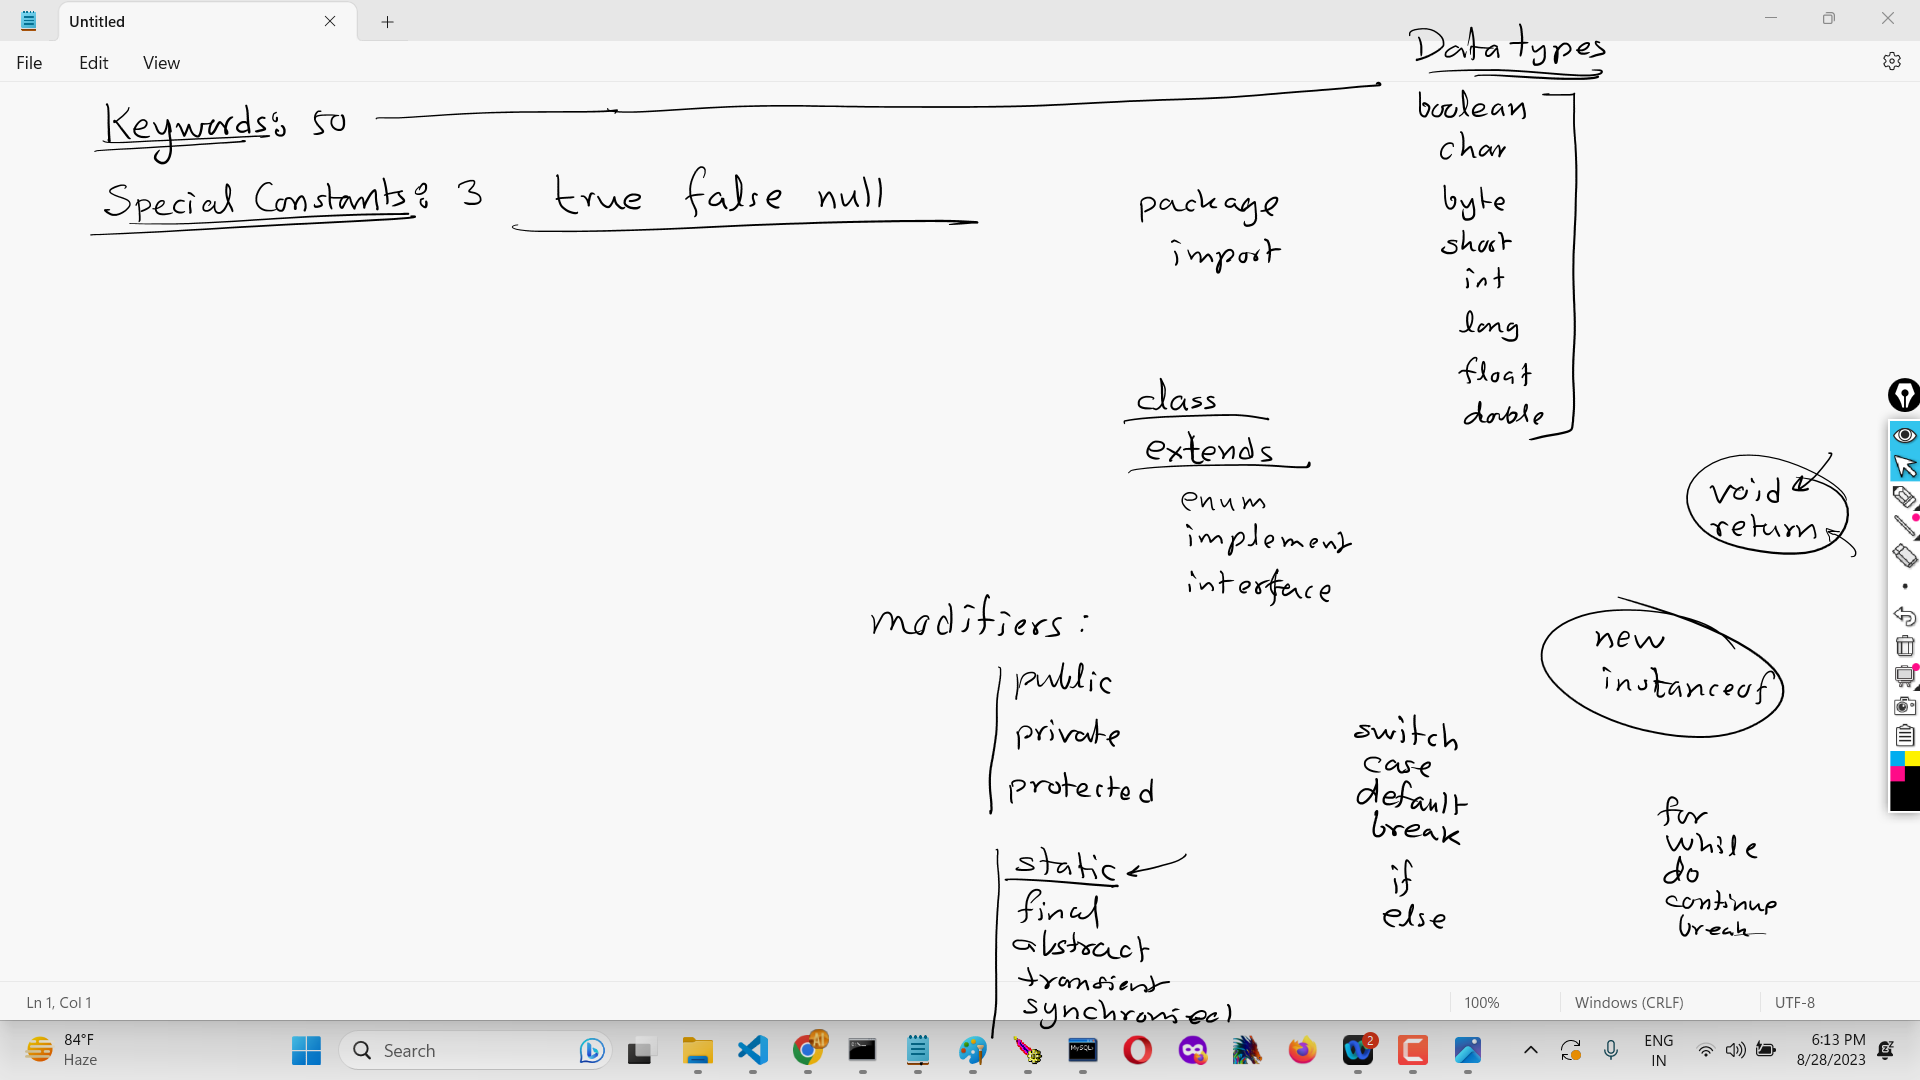 Untitled
File Edit View
Keywords: 50
Special Constants: 3 true false null
Datatypes
boolean
char
byte
short
int
long
float
double
package
import
class
extends
enum
implement
interface
void
return
new
instanceof
modifiers:
public
private
protected
static
final
abstract
transient
synchronised
switch
case
default
break
if
else
for
while
do
continue
break
Ln 1, Col 1 100% Windows (CRLF) UTF-8
84°F
Haze
Search
MySQL
2
ENG
IN
6:13 PM
8/28/2023